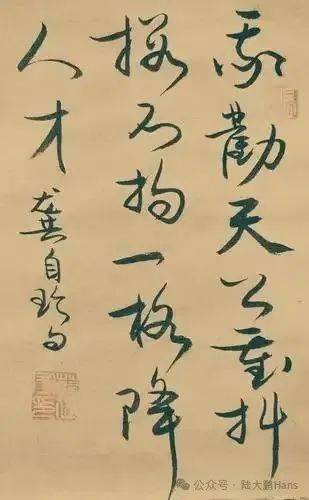 我劝天公重抖
擞不拘一格降
人才 龚自珍句
公众号·陆大鹏Hans